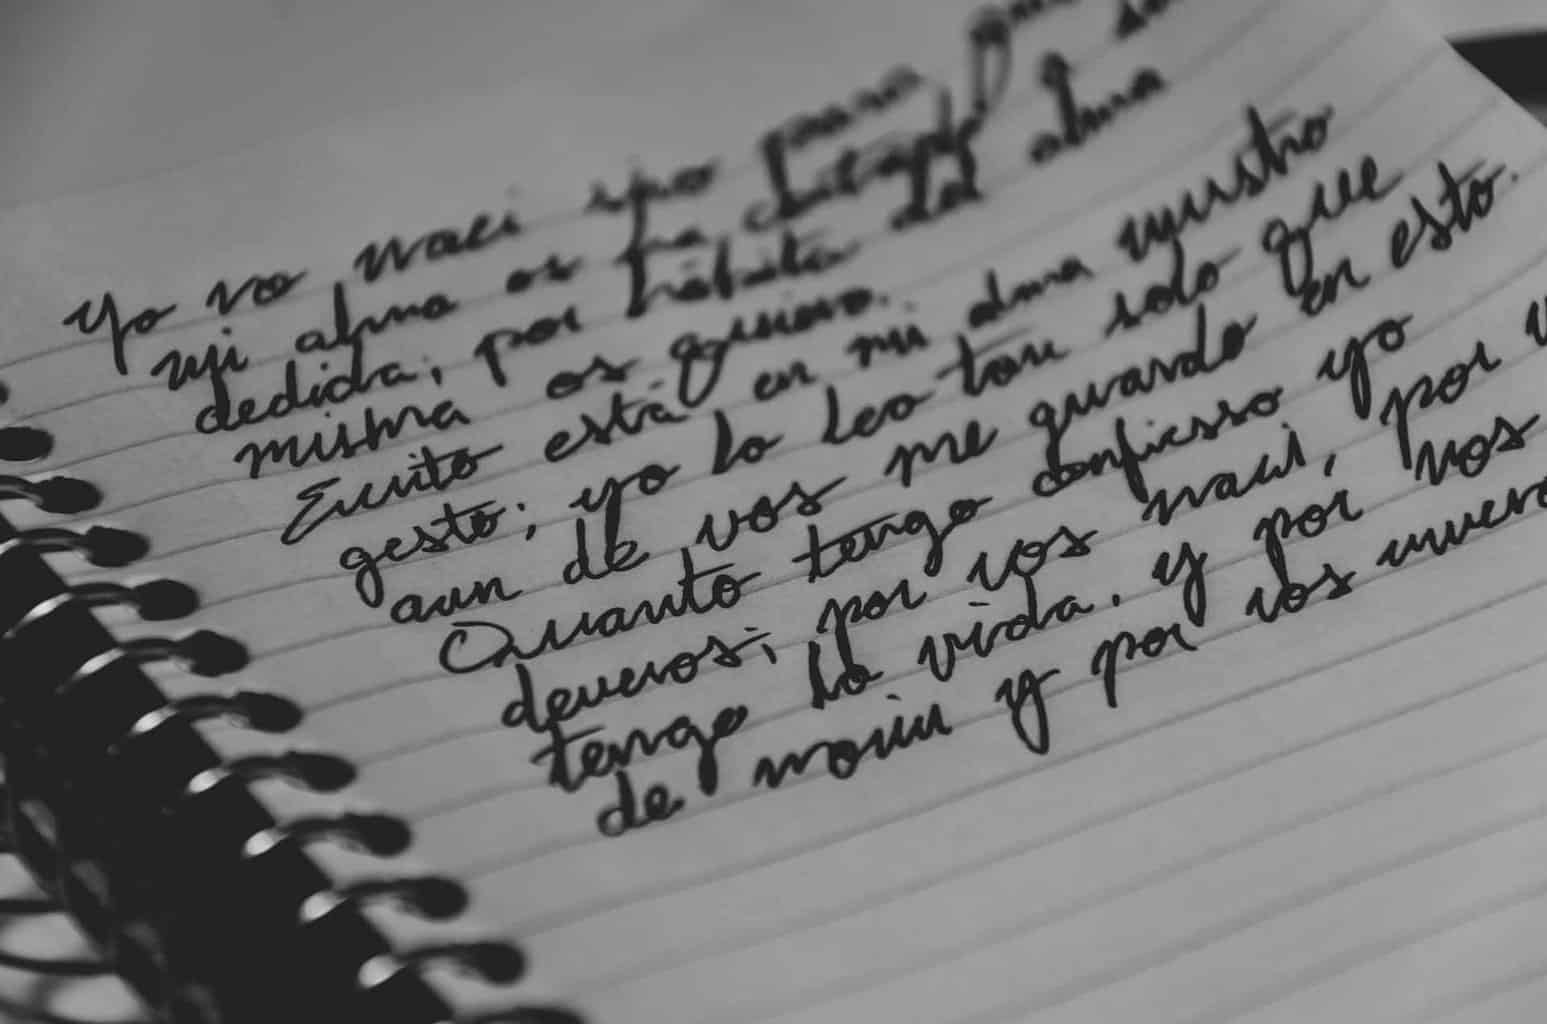 Yo no naci sino para
mi alma os ha cortado
dedida; por hábito del alma
misma os quiero.
Escrito está en mi alma vuestro
gesto; yo lo leo tan solo que
aun de vos me guardo en esto.
Quanto tengo confiesso yo
deveros; por vos naci, por v
tengo la vida. y por vos
de morir y por vos muero